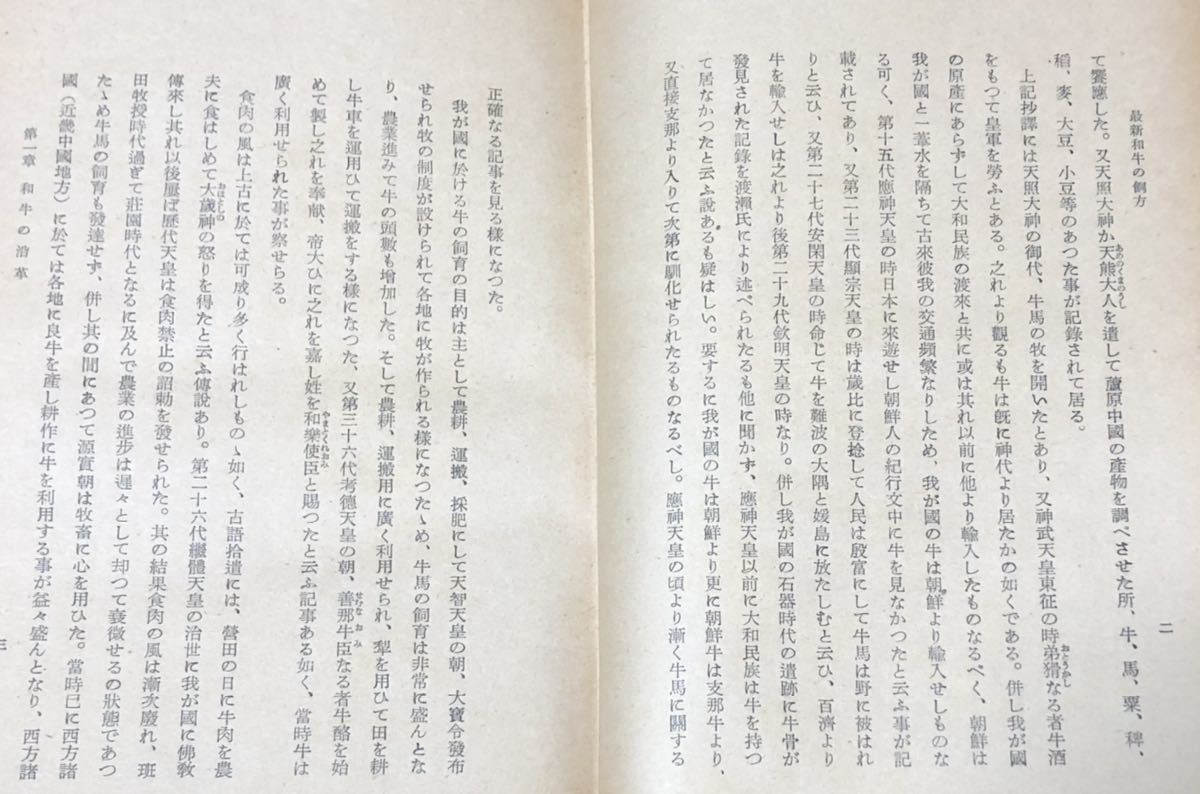 最新和牛の飼方
二
て饗應した。又天照大神か天熊大人を遣して蘆原中國の産物を調べさせた所、牛、馬、粟、稗、
稻、麥、大豆、小豆等のあつた事が記錄されて居る。
上記抄譯には天照大神の御代、牛馬の牧を開いたとあり、又神武天皇東征の時弟猾なる者牛酒
をもつて皇軍を勞ふとある。之れより觀るも牛は既に神代より居たかの如くである。併し我が國
の原産にあらずして大和民族の渡來と共に或は其れ以前に他より輸入したものなるべく、朝鮮は
我が國と一葦水を隔ちて古來彼我の交通頻繁なりしため、我が國の牛は朝鮮より輸入せしものな
る可く、第十五代應神天皇の時日本に來遊せし朝鮮人の紀行文中に牛を見なかつたと云ふ事が記
載されてあり、又第二十三代顯宗天皇の時は歲比に登捻して人民は殷富にして牛馬は野に被はれ
りと云ひ、又第二十七代安閑天皇の時命じて牛を難波の大隅と媛島に放たしむと云ひ、百濟より
牛を輸入せしは之れより後第二十九代欽明天皇の時なり。併し我が國の石器時代の遺跡に牛骨が
發見された記錄を渡瀨氏により述べられたるも他に聞かず、應神天皇以前に大和民族は牛を持つ
て居なかつたと云ふ說あるも疑はしい。要するに我が國の牛は朝鮮より更に朝鮮牛は支那牛より、
又直接支那より入りて次第に馴化せられたるものなるべし。應神天皇の頃より漸く牛馬に關する
正確なる記事を見る樣になつた。
我が國に於ける牛の飼育の目的は主として農耕、運搬、採肥にして天智天皇の朝、大寶令發布
せられ牧の制度が設けられて各地に牧が作られる樣になつたゝめ、牛馬の飼育は非常に盛んとな
り、農業進みて牛の頭數も增加した。そして農耕、運搬用に廣く利用せられ、犁を用ひて田を耕
し牛車を運用ひて運搬をする樣になつた、又第三十六代考德天皇の朝、善那牛臣なる者牛酪を始
めて製し之れを奉献、帝大ひに之れを嘉し姓を和樂使臣と賜つたと云ふ記事ある如く、當時牛は
廣く利用せられた事が察せらる。
食肉の風は上古に於ては可成り多く行はれしものゝ如く、古語拾遣には、營田の日に牛肉を農
夫に食はしめて大歲神の怒りを得たと云ふ傳說あり。第二十六代繼體天皇の治世に我が國に佛敎
傳來し其れ以後屢ば歷代天皇は食肉禁止の詔勅を發せられた。其の結果食肉の風は漸次廢れ、班
田牧授時代過ぎて莊園時代となるに及んで農業の進步は遲々として却つて衰微せるの狀態であつ
たゝめ牛馬の飼育も發達せず、併し其の間にあつて源實朝は牧畜に心を用ひた。當時已に西方諸
國(近畿中國地方)に於ては各地に良牛を産し耕作に牛を利用する事が益々盛んとなり、西方諸
第一章 和牛の沿革
三